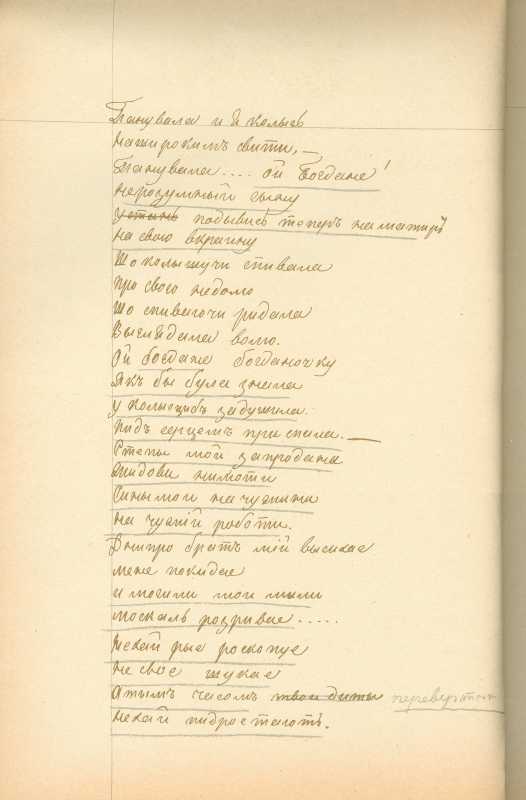 Панувала и я колысь
на широкимъ свити, —
Панувала.... ой Богдане!
неразумный сыну
у стынь подывись теперъ на матиръ
на свою вкраину
Шо колышучи спивала
про свою недолю
шо спиваючи ридала
Выглядала волю.
Ой Богдане богданочку
Якъ бы була знала
у колысцибъ задушила.
пидъ серцемъ приспала. —
Степы мои запродана
жидови нимоти
Сыны мои на чужини
на чужій роботи.
Днипро братъ мій высихае
мене покидае
и могили мои мыли
москаль розривае.....
Нехай рые роскопуе
не свое шукае
Атымъ часомъ твои диты перевертни
нехай пидростають.